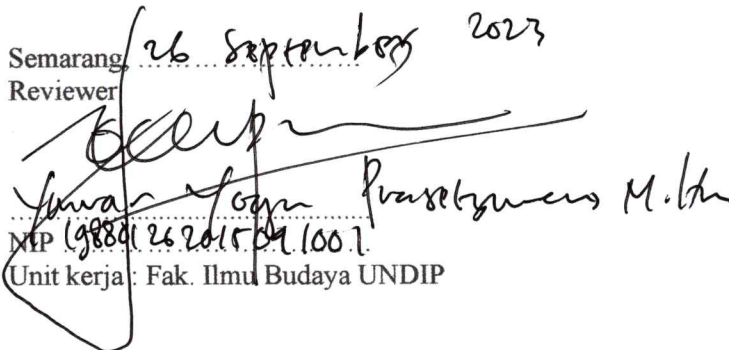 Semarang, 26 September 2023
Reviewer
Yuwan Yogja Prasetyawan M.Hu
NIP 198801262015091001
Unit kerja : Fak. Ilmu Budaya UNDIP